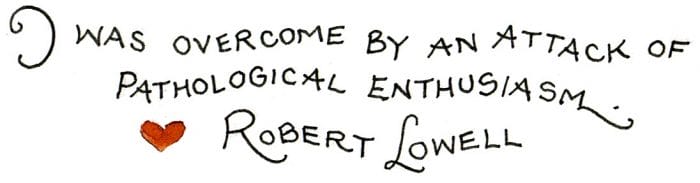 I WAS OVERCOME BY AN ATTACK OF
PATHOLOGICAL ENTHUSIASM.
ROBERT LOWELL